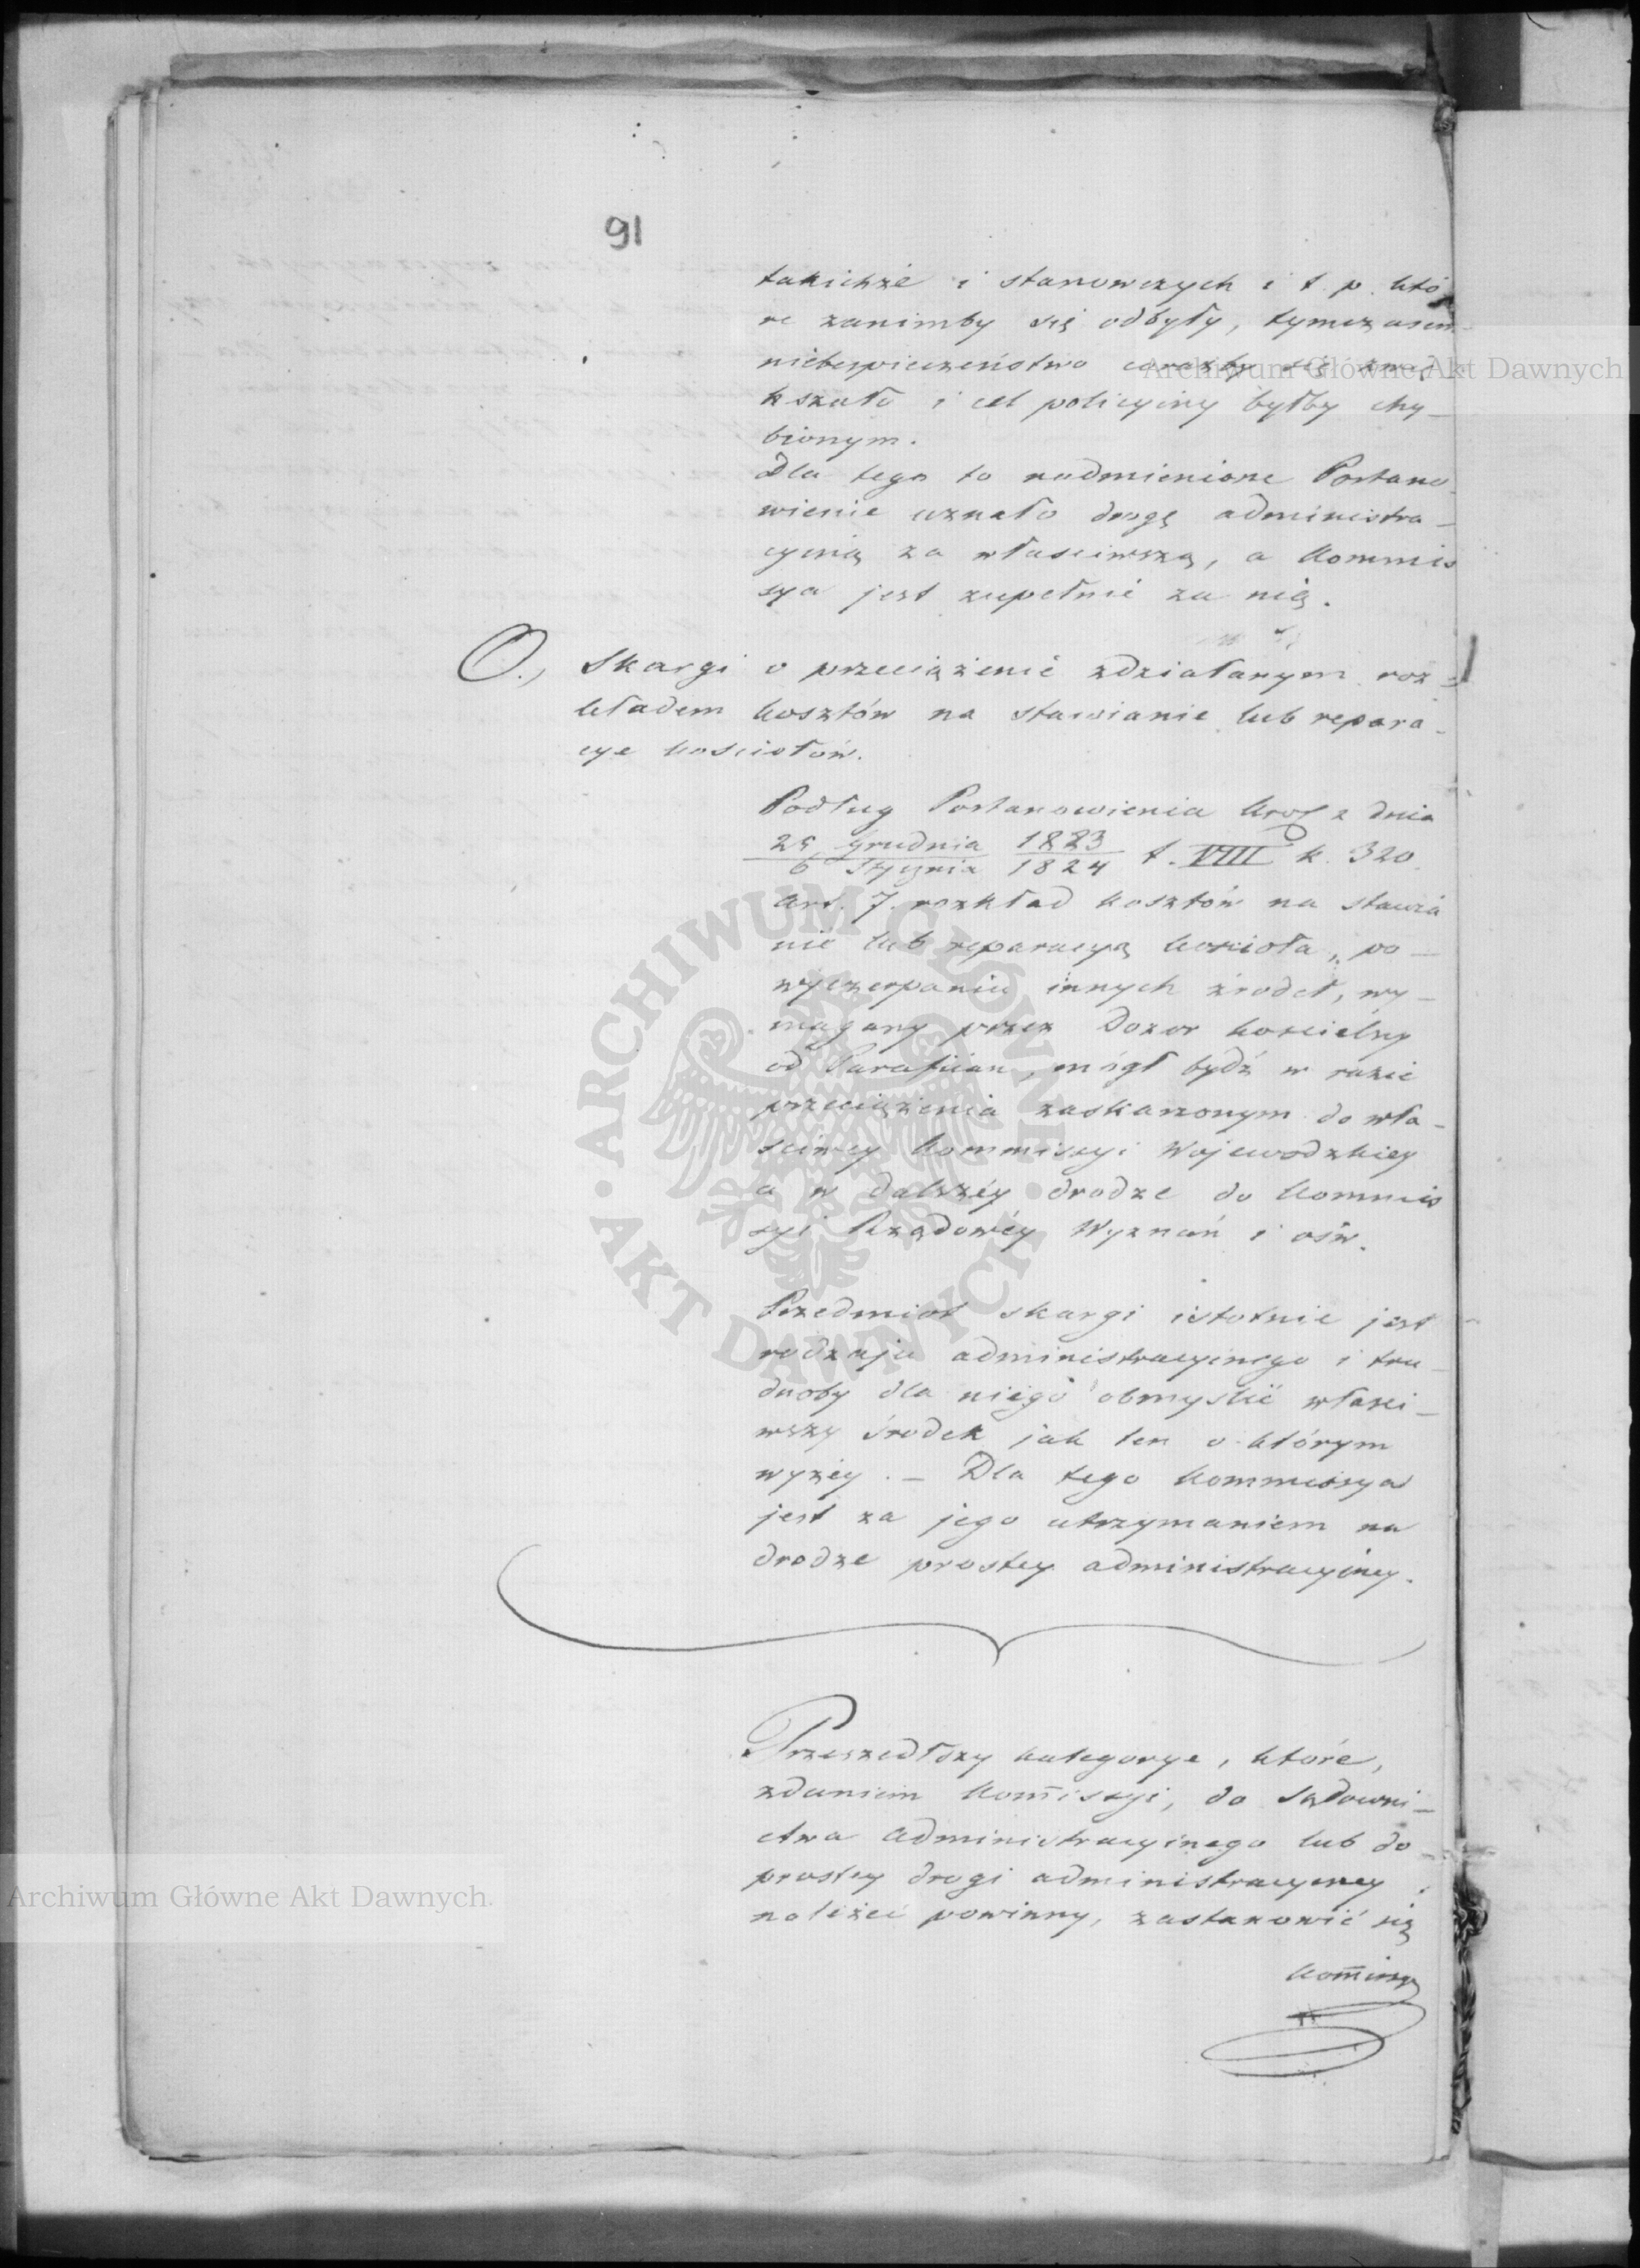 91
takichże i stanowczych i t. p. któ
re zanimby się odbyły, tymczasem
niebezpieczeństwo corazby się zwię
kszało i cel policyiny byłby chy-
bionym.
Dla tego to nadmienione Postano
wienie uznało drogę administra-
cyiną za właściwszą, a Kommis
sya jest zupełnie za nią.
O., Skargi o przeciążenie zdziałanym roz-
kładem kosztów na stawianie lub repara-
cye kościołów.
Podług Postanowienia Król z dnia
25 Grudnia 1823
6 Stycznia 1824 t. VIII k. 320.
Art. 7. rozkład kosztów na stawia
nie lub reparacyą kościoła, po-
wyczerpaniu innych źródeł, wy-
magany przez Dozór kościelny
od Parafiian, mógł bydź w razie
przeciążenia zaskarzonym do wła-
ściwey Kommissyi Wojewodzkiey
a w dalszéy drodze do Kommis
syi Rządowéy Wyznań i ośw.
Przedmiot skargi istotnie jest
rodzaju administracyinego i tru-
dnoby dla niego obmyślić właści-
wszy środek jak ten o którym
wyżéy. - Dla tego Kommissya
jest za jego utrzymaniem na
drodze prostey administracyiney.
Przeszedłszy kategorye, które,
zdaniem Kom̅issyi, do Sądowni-
ctwa administracyinego lub do
prostey drogi administracyiney
należeć powinny, zastanowić się
Kom̅issya
ARCHIWUM GŁÓWNE
AKT DAWNYCH
Archiwum Główne Akt Dawnych
Archiwum Główne Akt Dawnych.